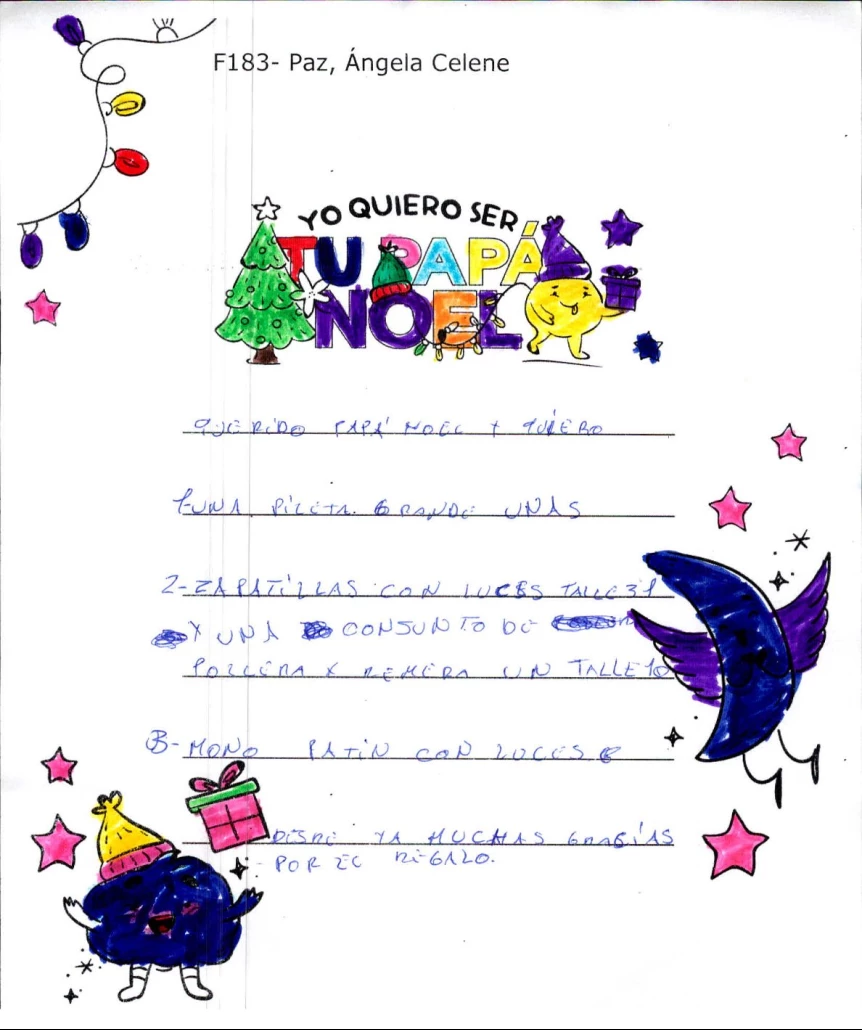 F183- Paz, Ángela Celene
YO QUIERO SER
TU PAPÁ
NOEL
QUERIDO PAPÁ NOEL Y QUIERO
1-UNA PILETA GRANDE UNAS
2-ZAPATILLAS CON LUCES TALLE 31
Y UNA CONSUNTO DE
POLLERA Y REMERA UN TALLE 10
3-MONO PATIN CON LUCES
DESDE YA MUCHAS GRASIAS
POR EL REGALO.